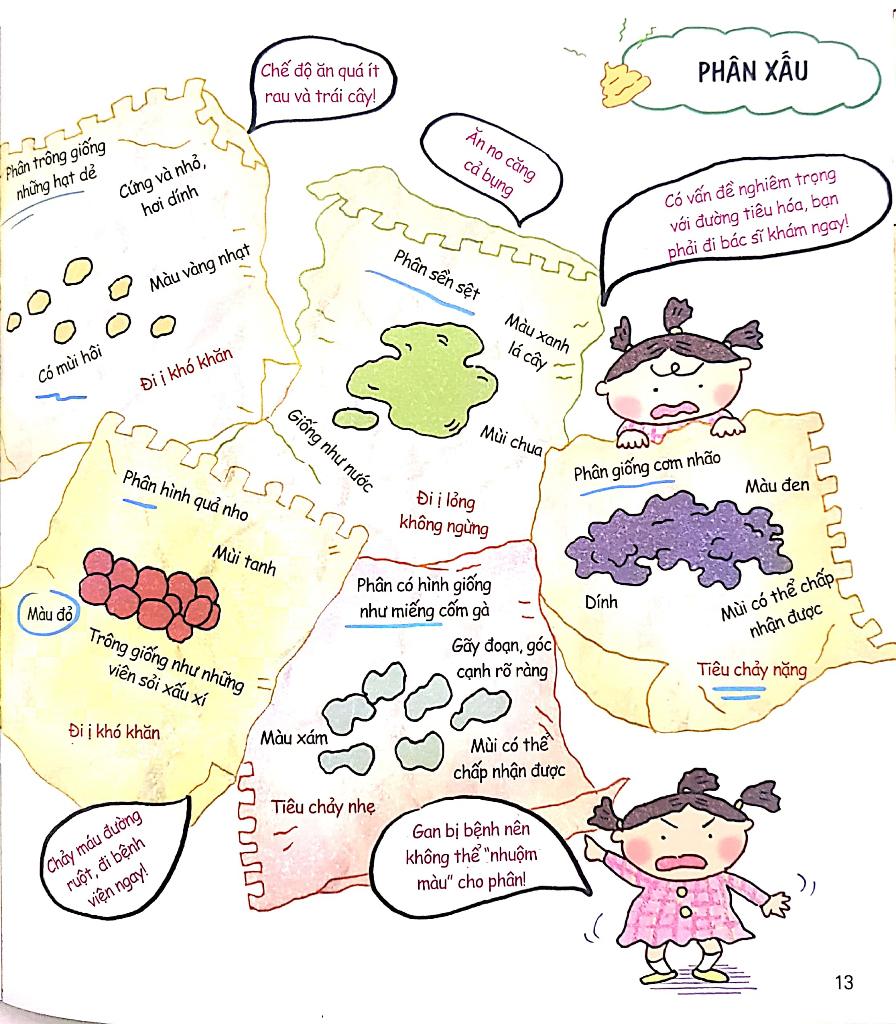 PHÂN XẤU
Chế độ ăn quá ít
rau và trái cây!
Phân trông giống
những hạt dẻ
Cứng và nhỏ,
hơi dính
Màu vàng nhạt
Có mùi hôi
Đi ị khó khăn
Ăn no căng
cả bụng
Phân sền sệt
Màu xanh
lá cây
Giống như nước
Mùi chua
Đi ị lỏng
không ngừng
Có vấn đề nghiêm trọng
với đường tiêu hóa, bạn
phải đi bác sĩ khám ngay!
Phân giống cơm nhão
Màu đen
Dính
Mùi có thể chấp
nhận được
Tiêu chảy nặng
Phân hình quả nho
Mùi tanh
Màu đỏ
Trông giống như những
viên sỏi xấu xí
Đi ị khó khăn
Chảy máu đường
ruột, đi bệnh
viện ngay!
Phân có hình giống
như miếng cốm gà
Gãy đoạn, góc
cạnh rõ ràng
Màu xám
Mùi có thể
chấp nhận được
Tiêu chảy nhẹ
Gan bị bệnh nên
không thể "nhuộm
màu" cho phân!
13